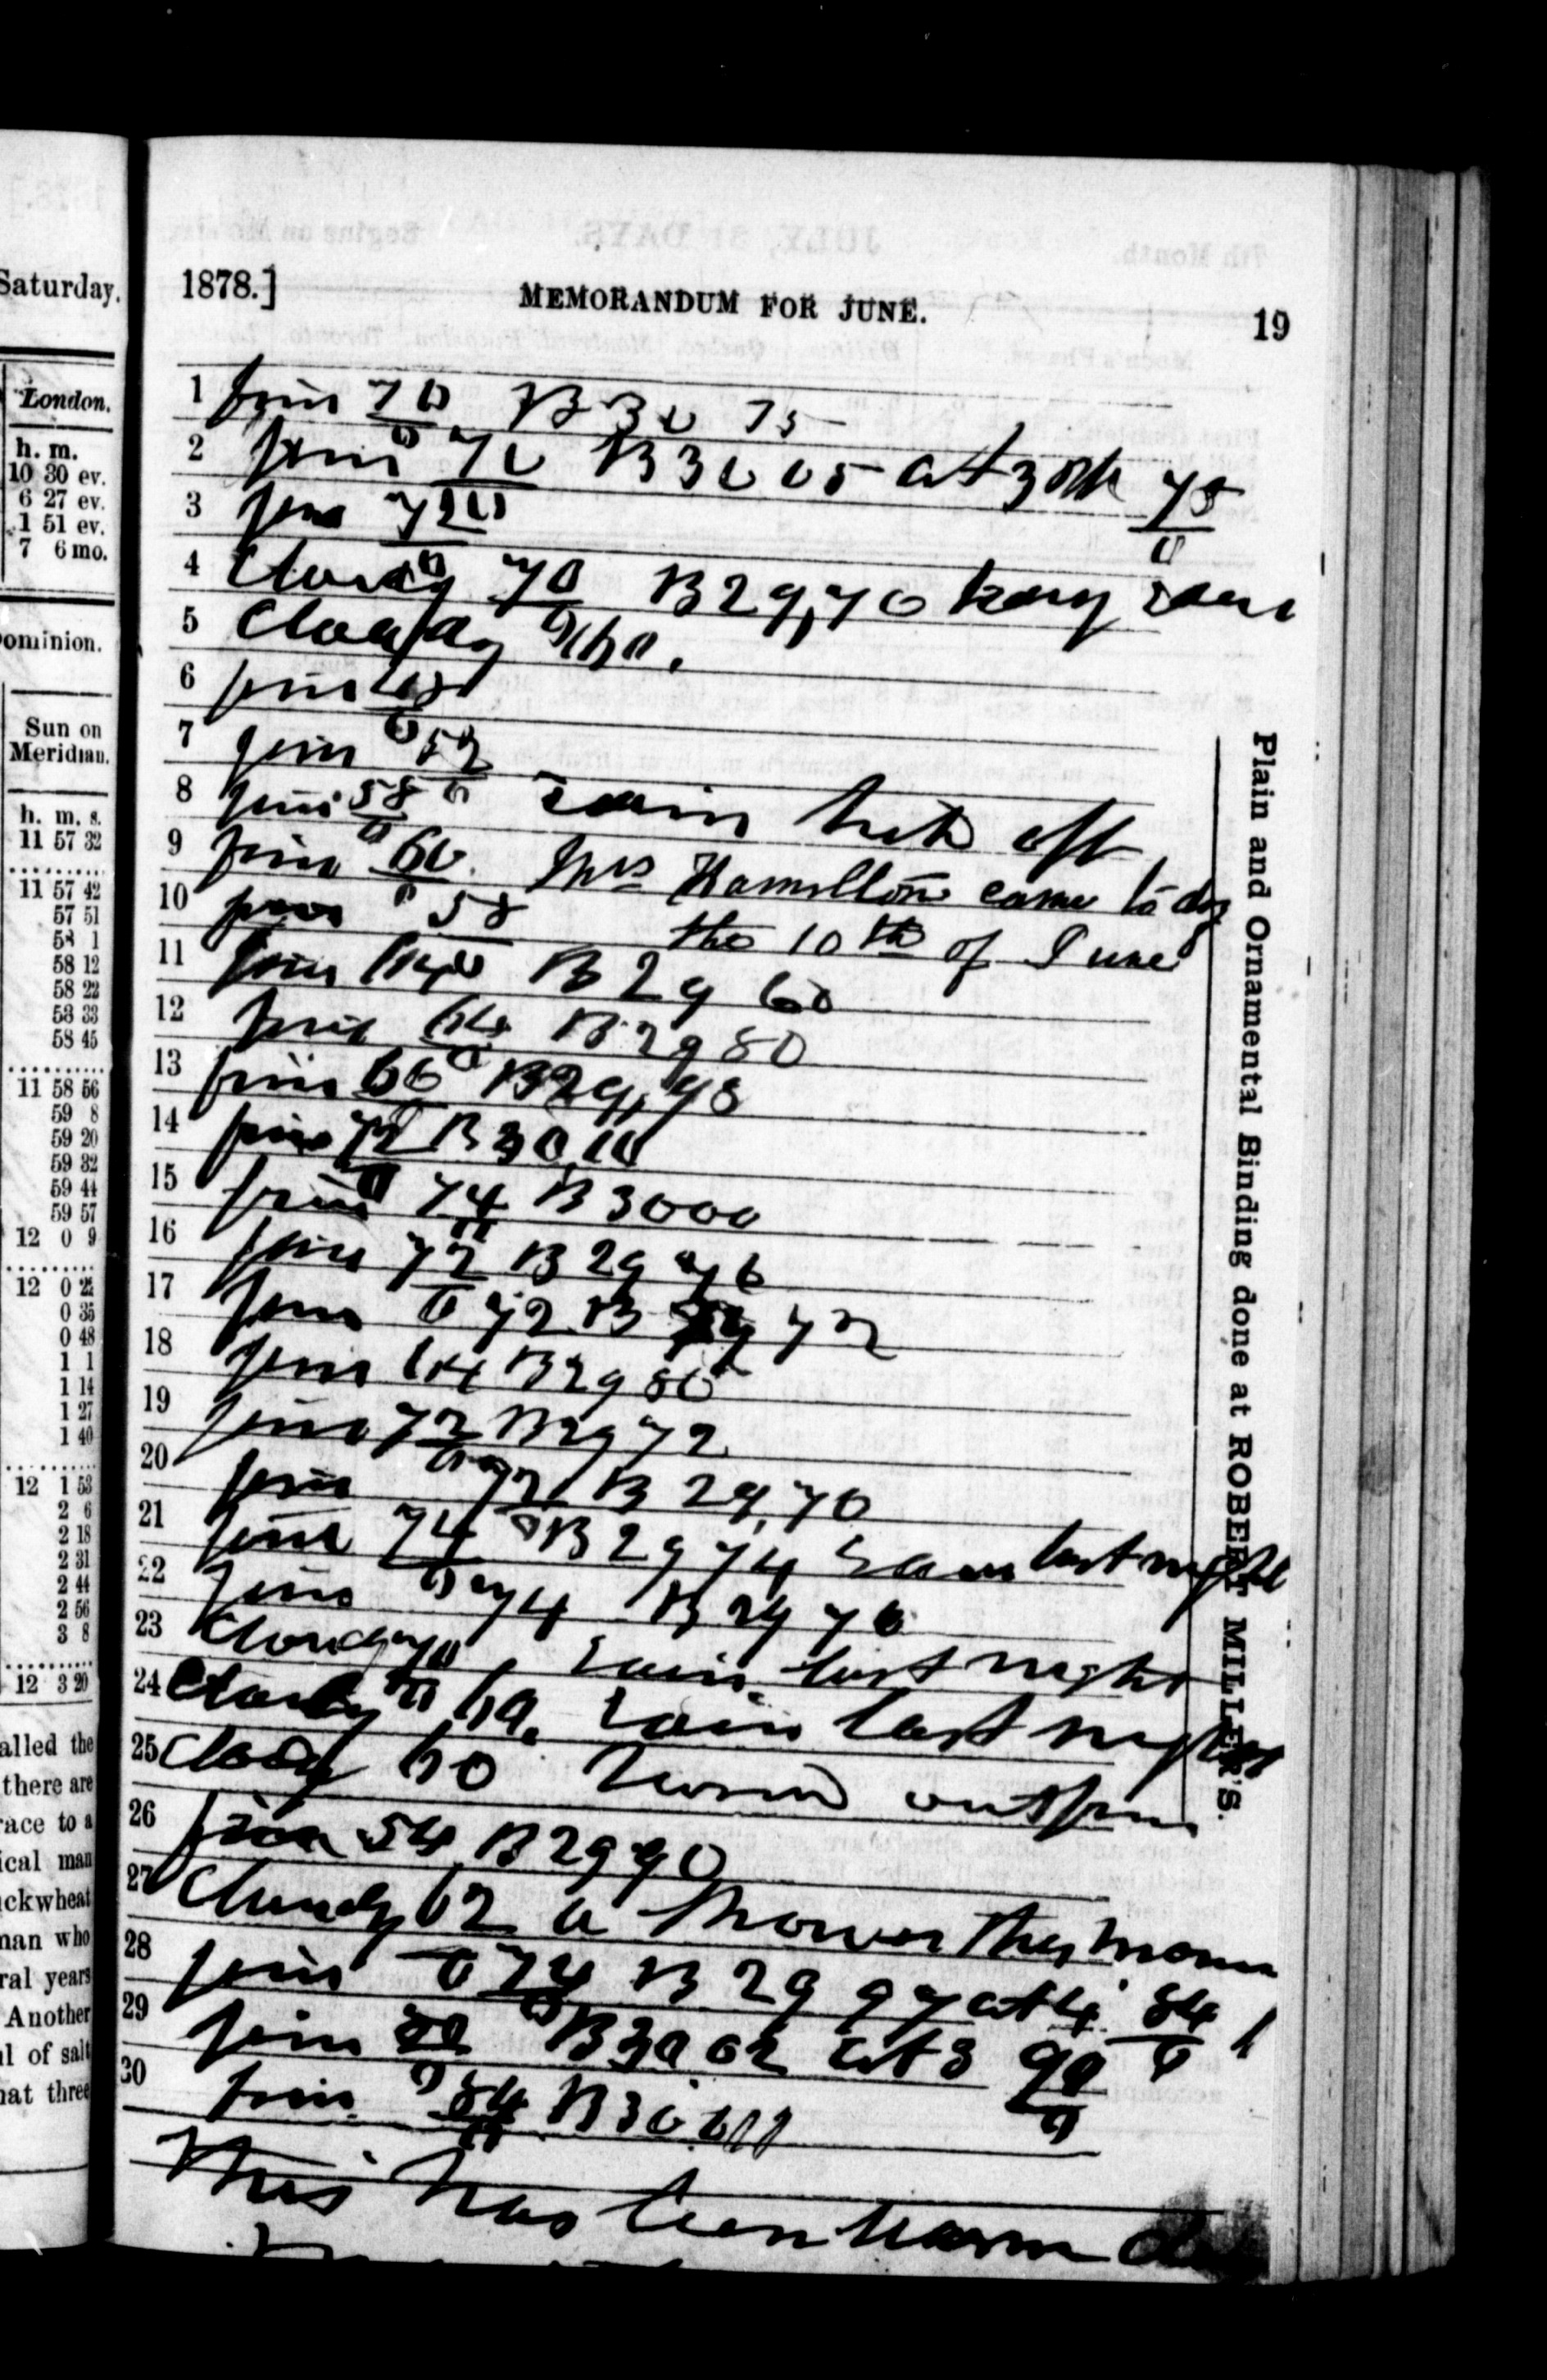 Saturday.
London.
h. m.
10 30 ev.
6 27 ev.
1 51 ev.
7 6 mo.
ominion.
Sun on
Meridian.
h. m. s.
11 57 32
11 57 42
57 51
58 1
58 12
58 22
58 33
58 45
11 58 56
59 8
59 20
59 32
59 44
59 57
12 0 9
12 0 22
0 35
0 48
1 1
1 14
1 27
1 40
12 1 53
2 6
2 18
2 31
2 44
2 56
3 8
12 3 20
alled the
there are
race to a
ical man
ickwheat
nan who
ral years
Another
ul of salt
nat three
1878.]
MEMORANDUM FOR JUNE.
19
1 fine 70 B 30 75
2 fine 70 B 30 05 at 3 75
3 fine 72
4 Cloudy 70 B 29,70 rain
5 Cloudy 60.
6 fine
7 fine 52
8 fine 58 rain off
9 fine 60. Mrs Hamilton came to day
10 fine 58 the 10th of June
11 fine B 29 60
12 fine 64 B 29 80
13 fine 66 B 29,98
14 fine 72 B 30,10
15 fine 74 B 3000
16 fine 72 B 29 76
17 fine 72 B 72
18 fine 64 B 29 80
19 fine 72 B 29 72
20 fine 72 B 29,70
21 fine 74 B 29 74 rain last night
22 fine 74 B 29 76
23 Cloudy 70 rain last night
24 Cloudy 60. rain last night
25 Cloudy 60 turned out fine
26 fine 54 B 29 90
27 Cloudy 62 a shower this morn
28 fine 74 B 29 97 at 4 84
29 fine B 30 02 at 3 90
30 fine 84 B 30
This has been warm
Plain and Ornamental Binding done at ROBERT MILLER'S.